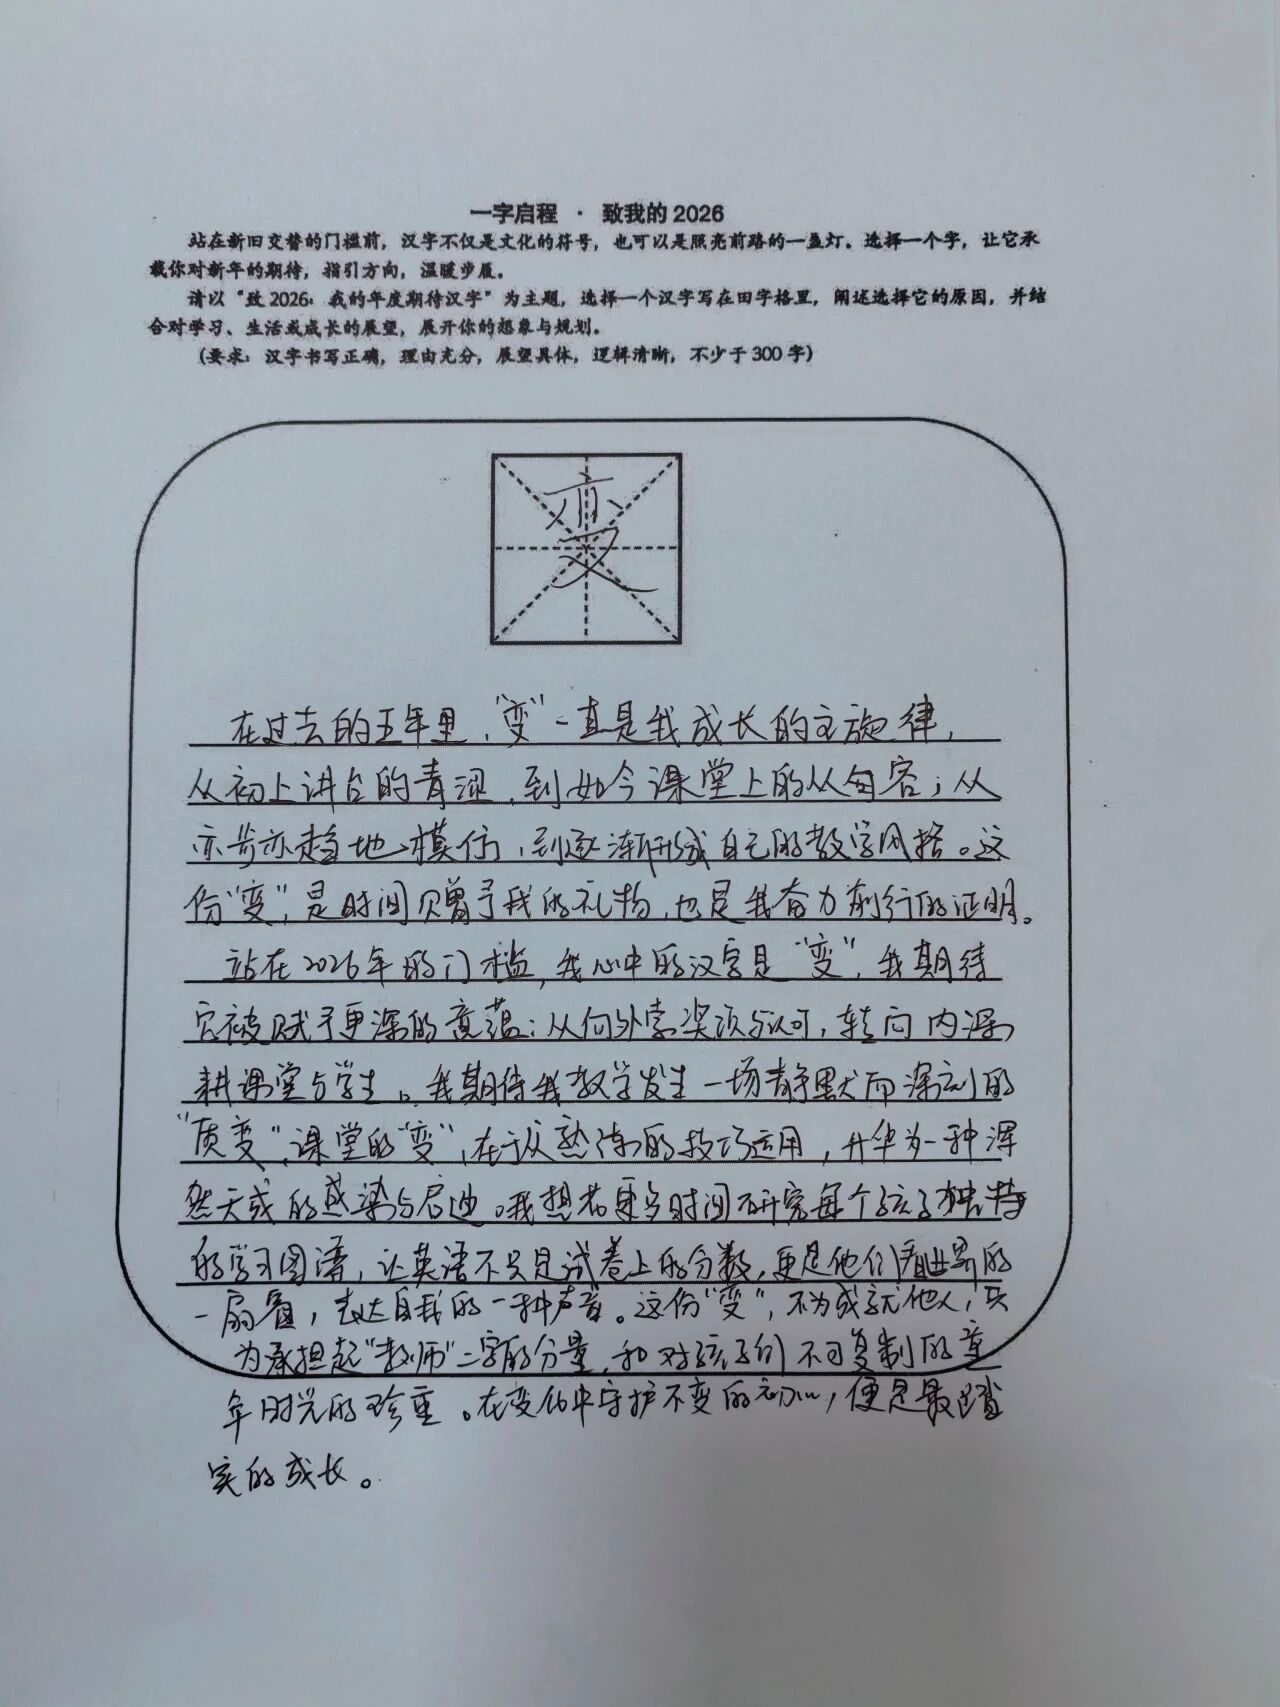 一字启程 · 致我的2026
站在新旧交替的门槛前，汉字不仅是文化的符号，也可以是照亮前路的一盏灯。选择一个字，让它承
载你对新年的期待，指引方向，温暖步履。
请以“致2026：我的年度期待汉字”为主题，选择一个汉字写在田字格里，阐述选择它的原因，并结
合对学习、生活或成长的展望，展开你的想象与规划。
（要求：汉字书写正确，理由充分，展望具体，逻辑清晰，不少于300字）
变
在过去的五年里，“变”一直是我成长的主旋律，
从初上讲台的青涩，到如今课堂上的从容；从
亦步亦趋地模仿，到逐渐形成自己的教学风格。这
份“变”，是时间赠予我的礼物，也是我奋力前行的证明。
站在2026年的门槛，我心中的汉字是“变”，我期待
它被赋予更深的意蕴：从向外求奖项与认可，转向内深
耕课堂与学生。我期待我教学发生一场静默而深刻的
“质变”，课堂的“变”，在于从熟练的技巧运用，升华为一种浑
然天成的感染与启迪。我想花更多时间研究每个孩子独特
的学习图谱，让英语不只是试卷上的分数，更是他们看世界的
一扇窗，表达自我的一种声音。这份“变”，不为成就他人，只
为承担起“教师”二字的分量，和对孩子们不可复制的童
年时光的珍重。在变化中守护不变的初心，便是最踏
实的成长。